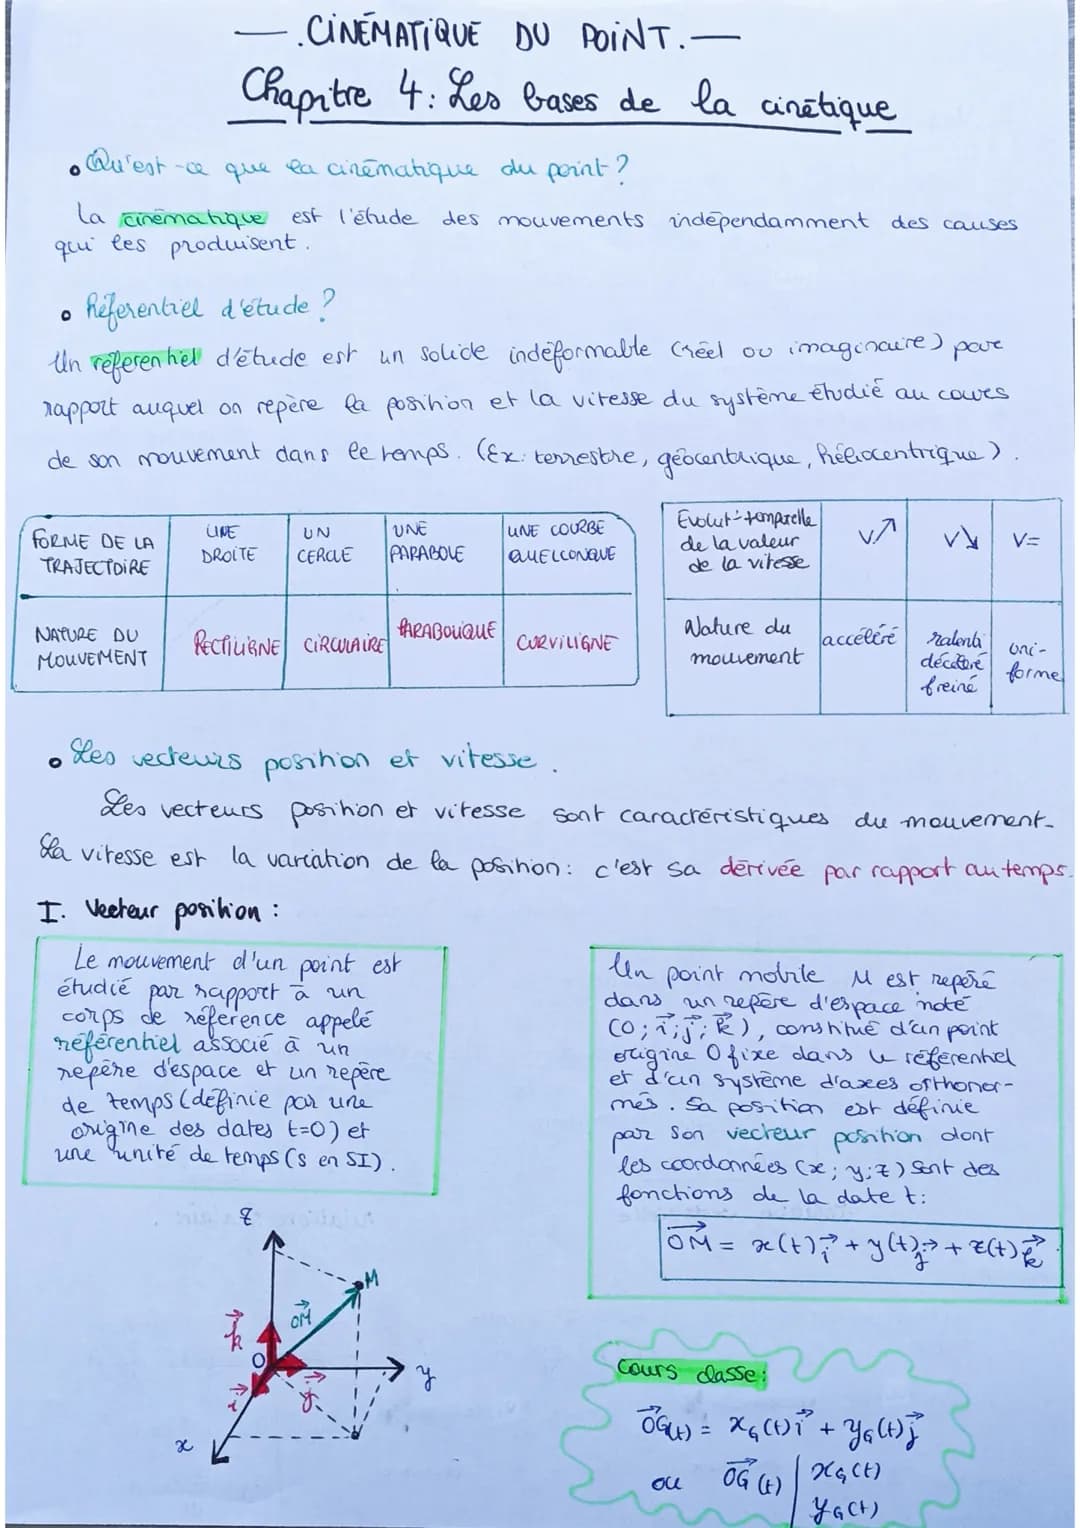 —.CINÉMATIQUE DU POINT.—
Chapitre 4: Les bases de la cinétique
• Qu'est-ce que la cinématique du point ?
La cinématique est l'étude des mouvements indépendamment des causes
qui les produisent.
• Réferentiel d'étude ?
Un réferentiel d'étude est un solide indéformable (réel ou imaginaire) par
rapport auquel on repère la position et la vitesse du système étudié au cours
de son mouvement dans le temps. (Ex: terrestre, géocentrique, héliocentrique).
FORME DE LA TRAJECTOIRE
UNE DROITE
UN CERCLE
UNE PARABOLE
UNE COURBE QUELCONQUE
NATURE DU MOUVEMENT
RECTILIGNE
CIRCULAIRE
PARABOLIQUE
CURVILIGNE
Evolut° temporelle
de la valeur
de la vitesse
V↗
V↘
V=
Nature du
mouvement
accéléré
ralenti
décéléré
freiné
uni-
forme
• Les vecteurs position et vitesse.
Les vecteurs position et vitesse sont caractéristiques du mouvement.
La vitesse est la variation de la position: c'est sa dérivée par rapport au temps.
I. Vecteur position :
Le mouvement d'un point est
étudié par rapport à un
corps de réference appelé
référentiel associé à un
repère d'espace et un repère
de temps (définie par une
origine des dates t=0) et
une unité de temps (s en SI).
Un point mobile M est repéré
dans un repère d'espace noté
(O; i⃗; j⃗; k⃗), constitué d'un point
origine O fixe dans le référentiel
et d'un système d'axes orthonor-
més. Sa position est définie
par son vecteur position dont
les coordonnées (x; y; z) sont des
fonctions de la date t:
OM⃗ = x(t)i⃗ + y(t)j⃗ + z(t)k⃗
z
M
OM⃗
k⃗
O
y
i⃗
j⃗
x
Cours classe:
OG⃗(t) = xG(t)i⃗ + yG(t)j⃗
ou OG⃗(t) | xG(t)
yG(t)